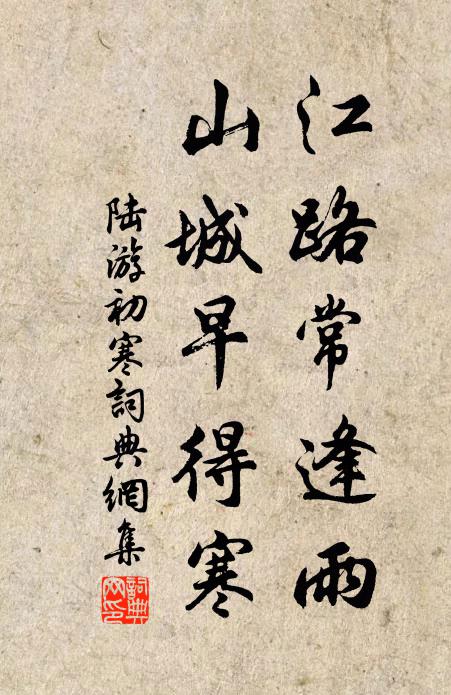 江路常逢雨
山城早得寒
陸游初寒詞典網集
詞典网印